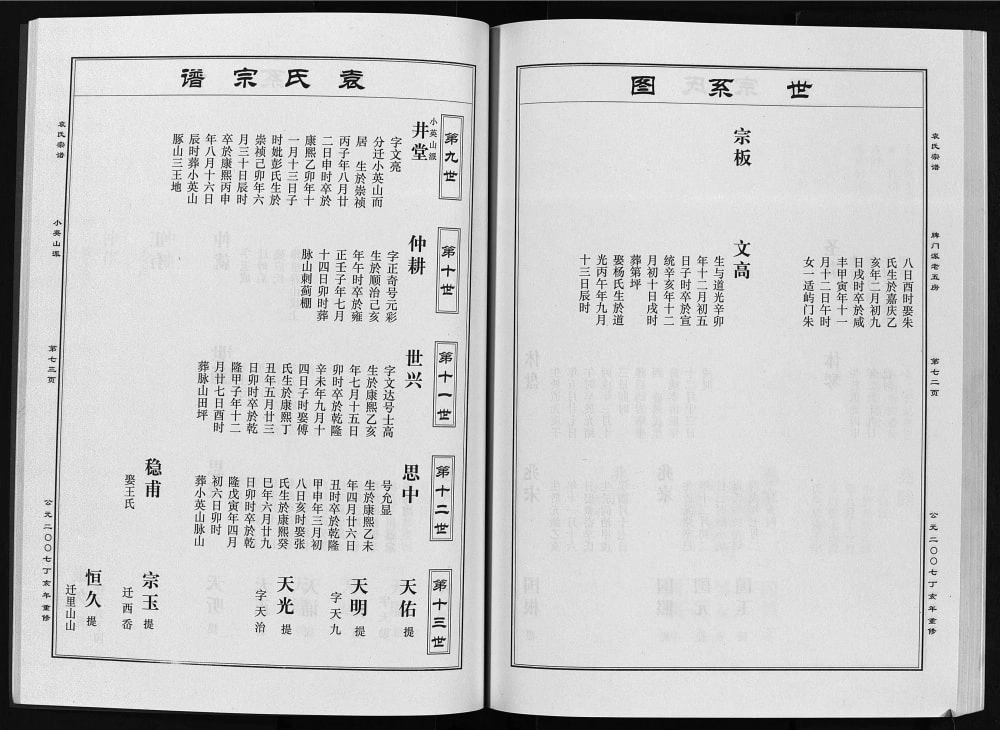 世系图
袁氏宗谱
牌门派老五房
第七二页
公元二〇〇七丁亥年重修
八日酉时娶朱
氏生於嘉庆乙
亥年二月初九
日戌时卒於咸
丰甲寅年十一
月十二日午时
女一适屿门朱
宗板
文高
生与道光辛卯
年十二月初五
日子时卒於宣
统辛亥年十二
月初十日戌时
葬第坪
娶杨氏生於道
光丙午年九月
十三日辰时
袁氏宗谱
第九世
小英山派
井堂
字文亮
分迁小英山而
居 生於崇祯
丙子年八月廿
二日申时卒於
康熙乙卯年十
一月十三日子
时妣彭氏生於
崇祯己卯年六
月三十日辰时
卒於康熙丙申
年八月十六日
辰时葬小英山
豚山三王地
第十世
仲耕
字正奇号元彩
生於顺治己亥
年午时卒於雍
正壬子年七月
十四日卯时葬
脉山刺蓟棚
第十一世
世兴
字文达号士高
生於康熙乙亥
年七月十五日
卯时卒於乾隆
辛未年九月十
四日子时娶傅
氏生於康熙丁
丑年五月廿三
日卯时卒於乾
隆甲子年十二
月廿七日酉时
葬脉山田坪
第十二世
思中
号允显
生於康熙乙未
年四月廿六日
丑时卒於乾隆
甲申年三月初
八日亥时娶张
氏生於康熙癸
巳年六月廿九
日卯时卒於乾
隆戊寅年四月
初六日卯时
葬小英山脉山
稳甫
娶王氏
第十三世
天佑 提
天明 提
字天九
天光 提
字天治
宗玉 提
迁西岙
恒久 提
迁里山山
袁氏宗谱
小英山派
第七三页
公元二〇〇七丁亥年重修